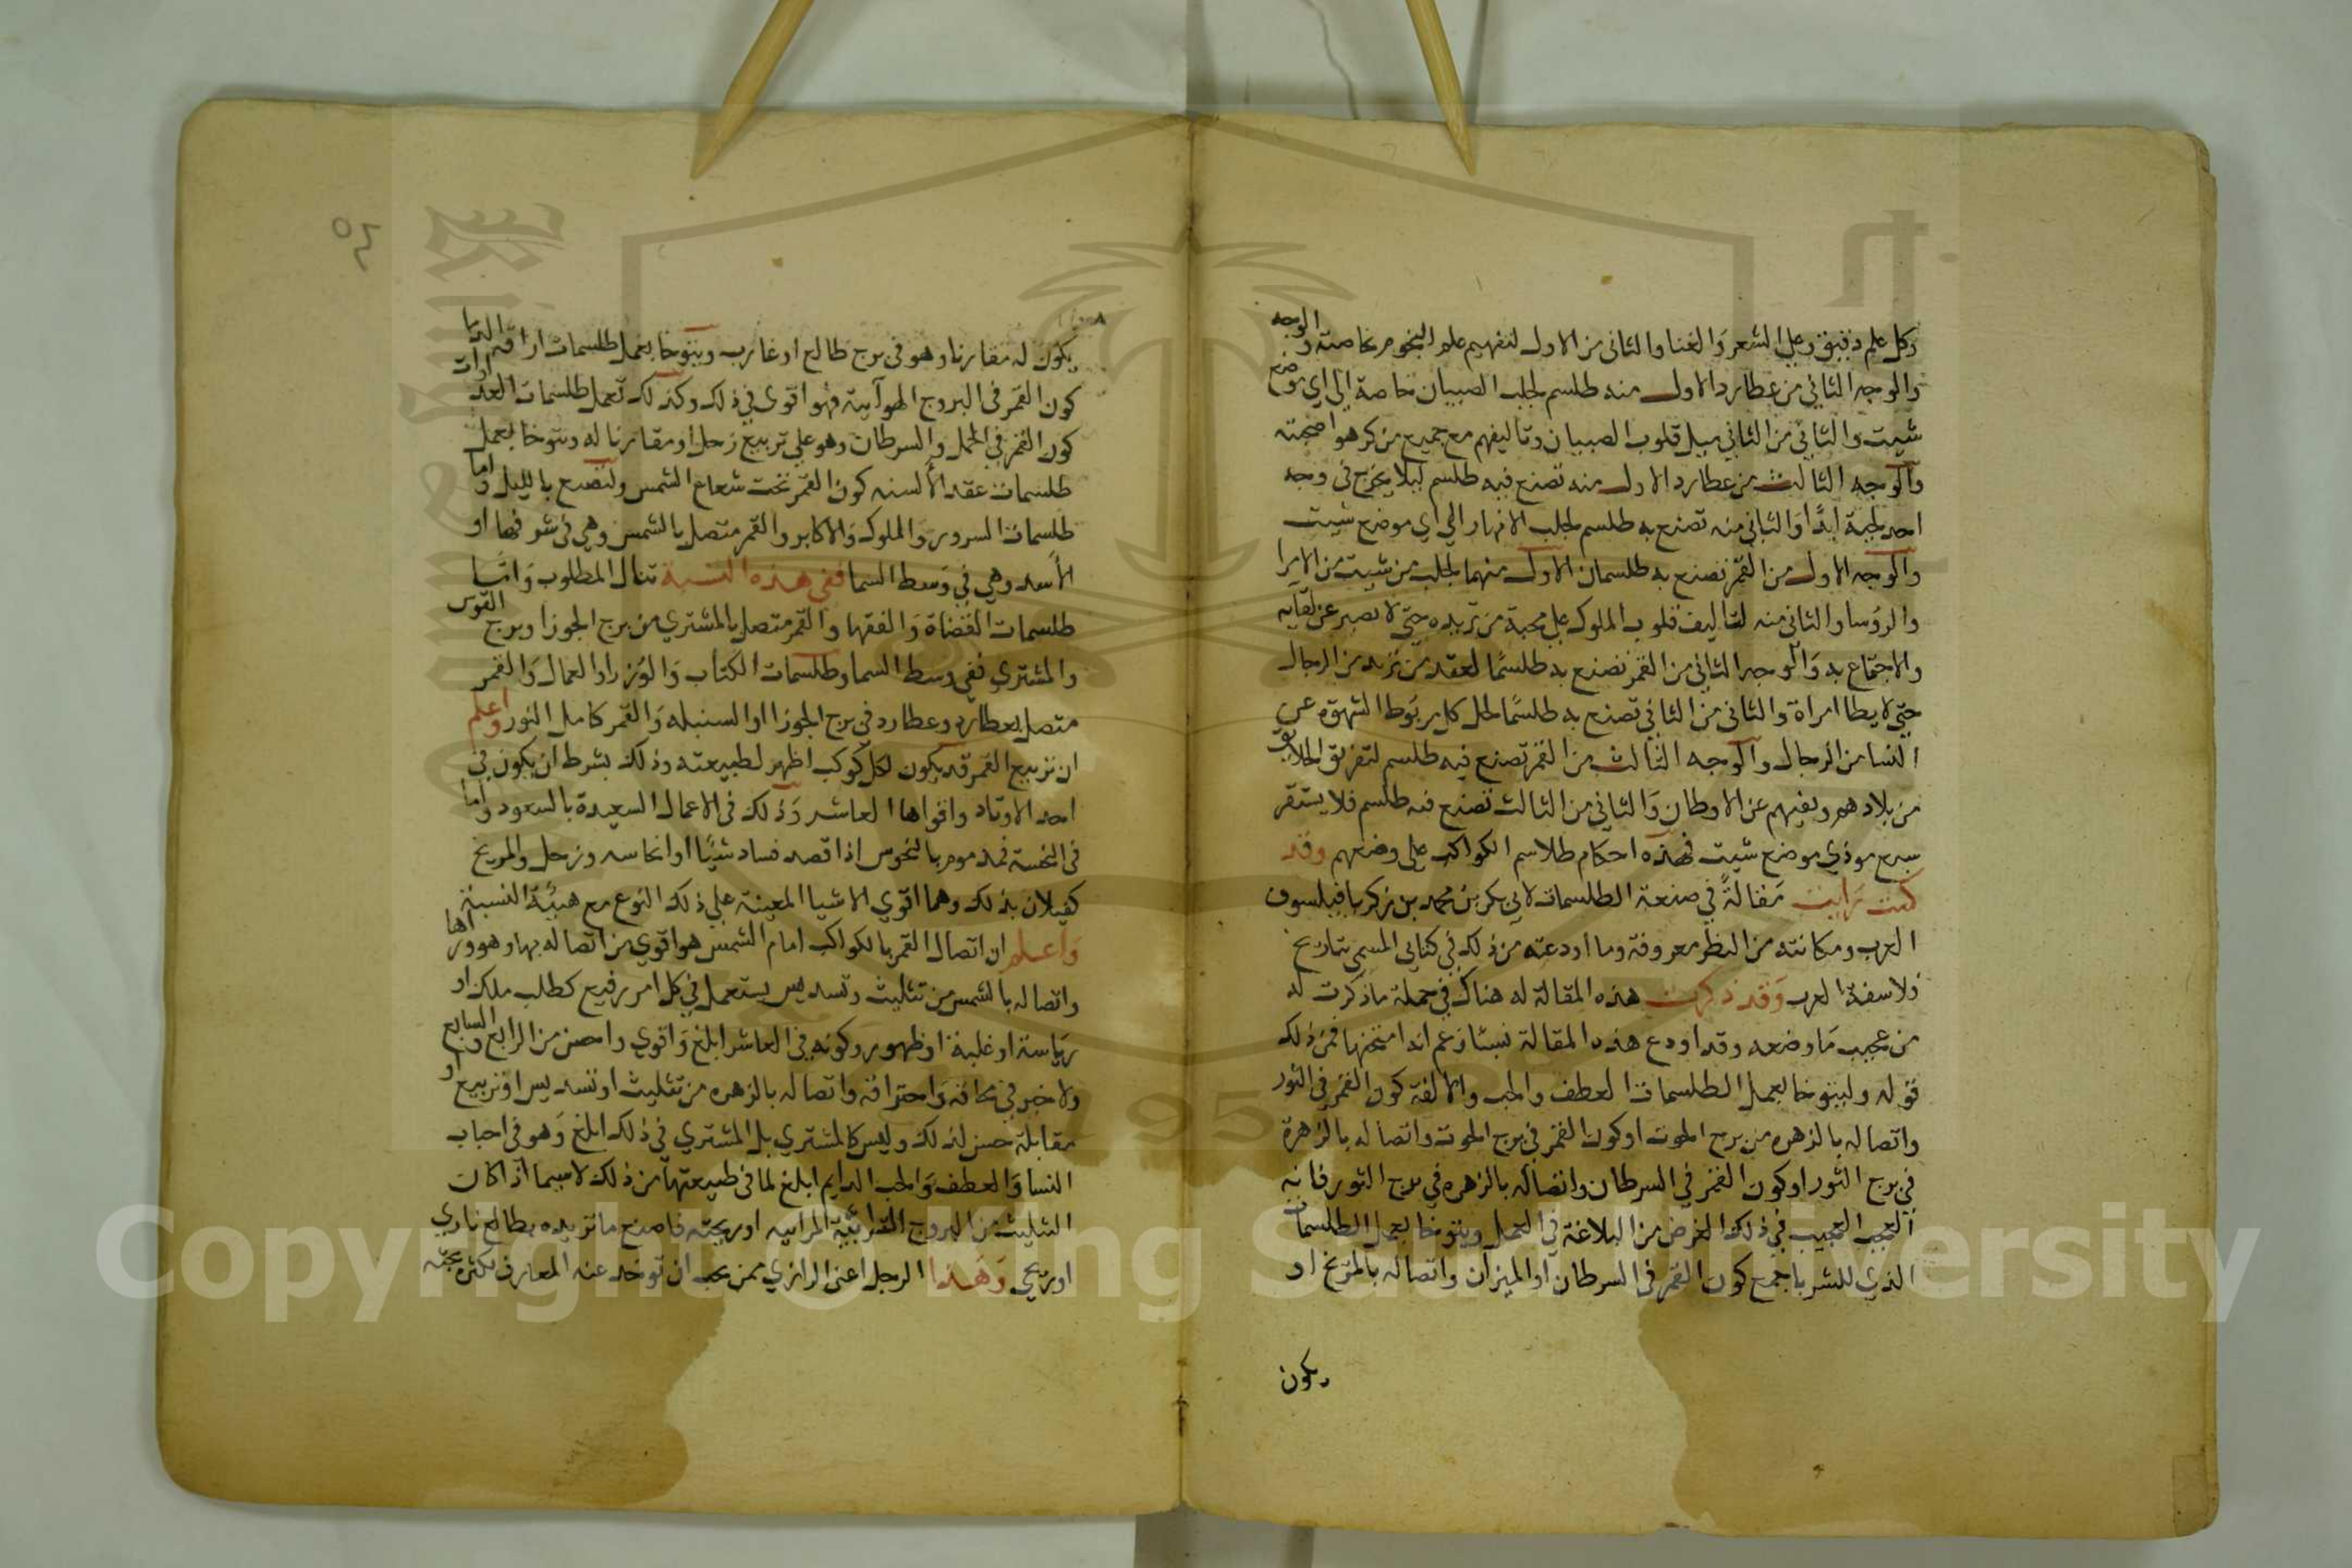 وكل علم دقيق وعلى الشعر والغنا والثاني من الاول لتفهيم علم النجوم خاصة والوجه
والوجه الثاني من عطارد الاول منه طلسم لجلب الصبيان خاصة الى اي موضع
شيت والثاني من الثاني ميل قلوب الصبيان وتاليفهم مع جميع من كرهوا صحبته
والوجه الثالث من عطارد الاول منه تصنع فيه طلسم ليلا يخرج في وجه
احد لحية ابدًا والثاني منه تصنع به طلسم لجلب الانهار الي اي موضع شيت
والوجه الاول من القمر تصنع به طلسمان الاول منهما لجلب من شيت من الامرا
والروسا والثاني منه لتاليف قلوب الملوك على محبة من تريده حتى لا يصبر عن لقايه
والاجتماع به والوجه الثاني من القمر تصنع به طلسمًا لعقد من تريد من الرجال
حتى لا يطا امراة والثاني من الثاني تصنع به طلسمًا لحل كل مربوط الشهوة عن
النسا من الرجال والوجه الثالث من القمر تصنع فيه طلسم لتفريق الخلايق
من بلادهم ونفيهم عن الاوطان والثاني من الثالث تصنع فيه طلسم فلا يستقر
سبع موذي موضع شيت فهذه احكام طلاسم الكواكب على وضعهم وقد
كنت رايت مقالةً في صنعة الطلسمات لابي بكر بن محمد بن زكريا فيلسوف
العرب ومكانته من النظر معروفة وما اودعته من ذلك في كتابي المسمى بتاريخ
فلاسفة العرب وقد ذكرت هذه المقالة له هناك في جملة ما ذكرت له
من عجيب ما وضعه وقد اودع هذه المقالة نسبًا زعم انه امتحنها فمن ذلك
قوله وليتوخا لعمل الطلسمات العطف والحب والالفة كون القمر في الثور
واتصاله بالزهره من برج الحوت او كون القمر في برج الحوت واتصاله بالزهرة
في برج الثور او كون القمر في السرطان واتصاله بالزهره في برج الثور فانه
العجب العجيب في ذلك الغرض من البلاغة في العمل ويتوخا لعمل الطلسمات
الذي للشر باجمع كون القمر في السرطان او الميزان واتصاله بالمريخ او
يكون
٥٤
يكون له مقارنا وهو في برج طالع او غارب ويتوخا بعمل طلسمات اراقة الدما
كون القمر في البروج الهوآيية فهو اقوى في ذلك وكذلك تعمل طلسمات العداوات
كون القمر في الحمل والسرطان وهو على تربيع زحل او مقارنا له ويتوخا بعمل
طلسمات عقد الألسنه كون القمر تحت شعاع الشمس ولتصنع بالليل واما
طلسمات السرور والملوك والاكابر والقمر متصل بالشمس وهي في شرفها او
الأسد وهي في وسط السما ففي هذه النسبة تنال المطلوب واما
طلسمات القضاة والفقها والقمر متصل بالمشتري من برج الجوزا وبرج القوس
والمشتري ففي وسط السما وطلسمات الكتاب والوزرا والعمال والقمر
متصل بعطارد وعطارد في برج الجوزا او السنبله والقمر كامل النور واعلم
ان تربيع القمر قد يكون لكل كوكب اظهر لطبيعته وذلك بشرط ان يكون في
احد الاوتاد واقواها العاشر وذلك في الاعمال السعيدة بالسعود واما
في النحسة فمذموم بالنحوس اذا قصد فساد شيئًا او انحاسه وزحل والمريخ
كفيلان بذلك وهما اقوي الاشيا المعينة علي ذلك النوع مع هيئة النسبة
واعلم ان اتصال القمر بالكواكب امام الشمس هو اقوي من اتصاله بها وهو وراها
واتصاله بالشمس من تثليث وتسديس يستعمل في كل امر رفيع كطلب ملك او
رياسة او غلبة او ظهور وكونه في العاشر ابلغ واقوي واحسن من الرابع والسابع
ولا خير في محاقه واحتراقه واتصاله بالزهره من تثليث او تسديس او تربيع او
مقابلة حسن لذلك وليس كالمشتري بل المشتري في ذلك ابلغ وهو في احباب
النسا والعطف والحب الدايم ابلغ لما في طبيعتها من ذلك لاسيما اذا كان
التثليث من البروج الترابيّة المراييه او ريحيّه فاصنع ما تريده بطالع ناري
او ريحي وهذا الرجل اعنى الرازي ممن يجب ان توخذ عنه المعارف لكثرة بحثه